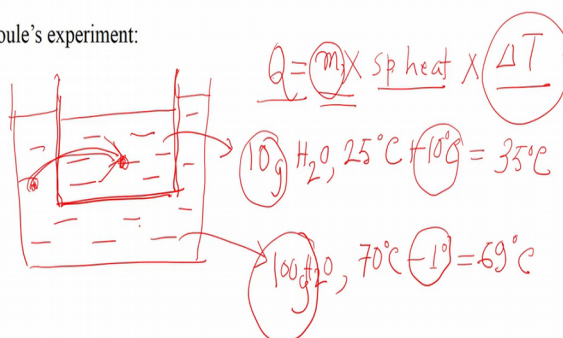 oule's experiment:
Q = m × sp heat × ΔT
10g H₂O, 25°C +10°C = 35°C
100g H₂O, 70°C -1° = 69°C